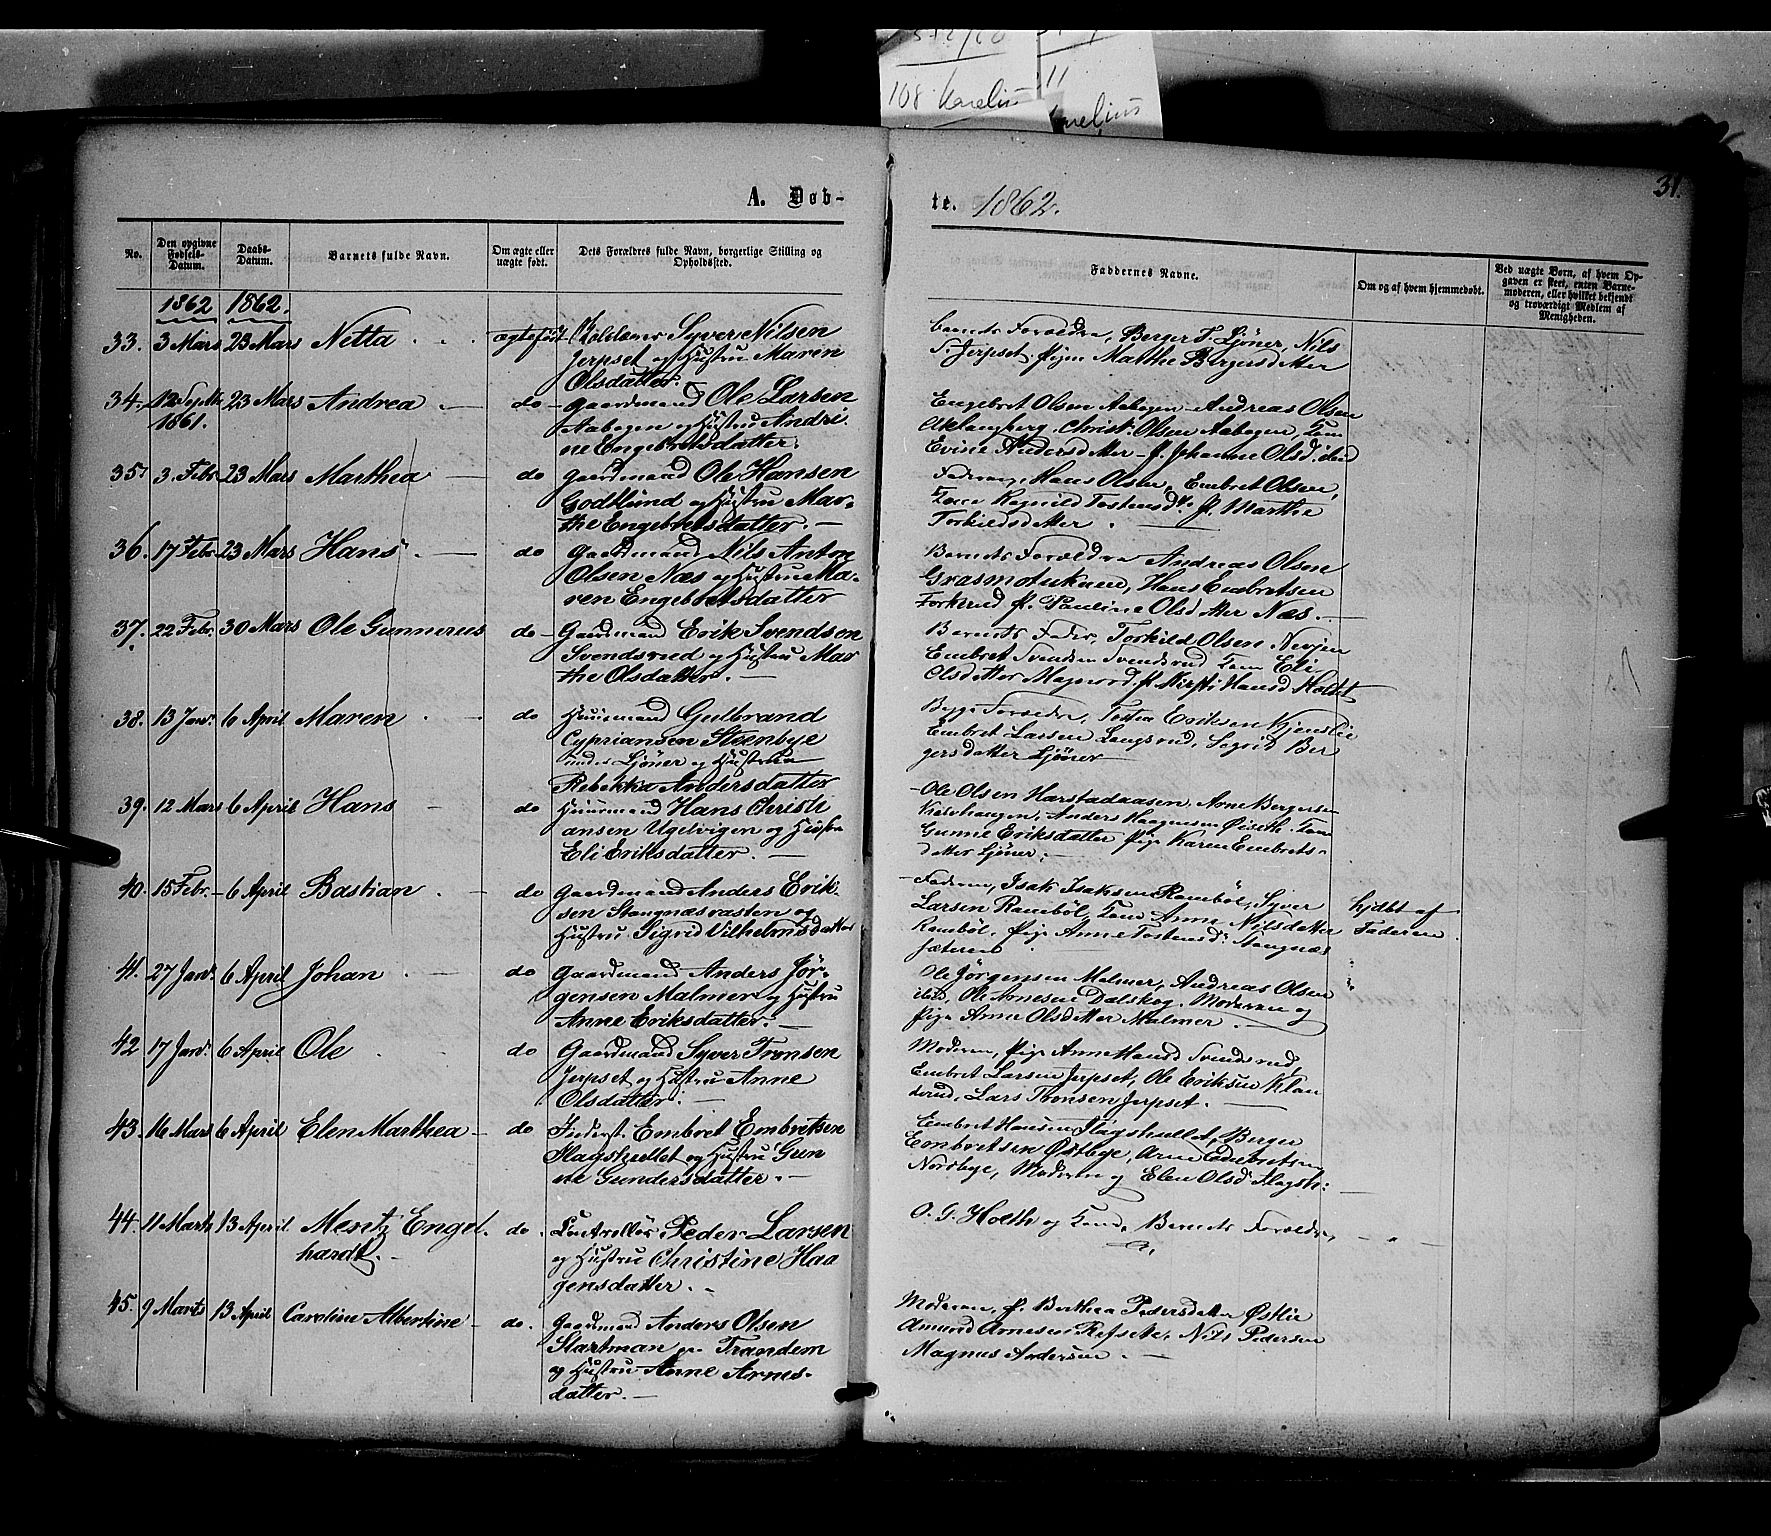 108 Karelius
11
A. Døb-
te. 1862.
31.
No.
Den opgivne Fødsels-Datum.
Daabs-Datum.
Barnets fulde Navn.
Om ægte eller uægte født.
Dets Forældres fulde Navn, borgerlige Stilling og Opholdssted.
Faddernes Navne.
Om og af hvem hjemmedøbt.
Ved uægte Børn, af hvem Opgaven er skeet, enten Barnemoderen, eller hvilket bekjendt og troværdigt Medlem af Menigheden.
1862 1862.
33. 3 Mars 23 Mars Netta ægtefødt Syver Nilsen
Jerpset og Hustru Maren
Olsdatter.
Barnets Forældre, Berger T. Ljöner, Nils
S. Jerpset, Pige Marthe Bergersdatter
34. 12 Septbr 1861. 23 Mars Andrea do Gaardmand Ole Larsen
Aabogen og Hustru Andri
ne Engebretsdatter.
Engebret Olsen Aabogen, Andreas Olsen
Aklangberg, Christ. Olsen Aabogen, Kone
Evine Andersdatter, P. Johanne Olsd. ibid
35. 3. Febr 23 Mars Marthea do Gaardmand Ole Hansen
Godtlund og Hustru Mar-
the Engebretsdatter.
Faderen, Hans Olsen, Embret Olsen,
Kone Ragnild Tostensd. P. Marthe
Torkildsdatter.
36. 17 Febr 23 Mars Hans do Gaardmand Nils Anton
Olsen Næs og Hustru Ma-
ren Engebretsdatter
Barnets Forældre Andreas Olsen
Grasmotukaen, Hans Embretsen
Torkerud, P. Pauline Olsdatter Næs.
37. 22 Febr. 30 Mars Ole Gunnerius do Gaardmand Erik Svendsen
Svendsrud og Hustru Mar
the Olsdatter.
Barnets Fader, Torkild Olsen
Embret Svendsen Svendsrud Kone Eli
Olsdatter Magnord, P. Kirsti Hansd Holdt
38. 13 Janr. 6 April Maren do Huusmand Gulbrand
Cypriansen Steenbye
under Ljöner og Hustru
Rebekka Andersdatter
Begge Forældre, Tosten Eriksen Kjenslie
Embret Larsen Langsrud, Sigrid Ber
gersdatter Ljöner
39. 12 Mars 6 April Hans do Huusmand Hans Christi
ansen Ugelvigen og Hustru
Eli Eriksdatter.
Ole Olsen Harstadaasen, Arne Bergersen
Anders Haagensen Öiseth. Kone
Gunne Eriksdatter Pige Karen Embrets-
datter Ljöner.
40. 15 Febr. 6 April Bastian do Gaardmand Anders Erik-
sen Stangnæsvasten og
Hustru Sigrid Vilhelmsdatter
Faderen, Isak Isaksen Ramböl, Syver
Larsen Ramböl, Kone Anne Nilsdatter
Ramböl, Pige Anne Tostensd. Stangnæs
sæteren
hjdbt af
Faderen
41. 27 Janr. 6 April Johan do Gaardmand Anders Jör-
gensen Malmer og Hustru
Anne Eriksdatter.
Ole Jörgensen Malmer, Andreas Olsen
ibid, Ole Arnesen Dalskog, Moderen og
Pige Anne Olsdatter Malmer.
42 17 Janr. 6 April Ole do Gaardmand Syver Tronsen
Jerpset og Hustru Anne
Olsdatter.
Moderen, Pige Anne Hansd Svendsrud,
Embret Larsen Jerpset, Ole Eriksen Klan
derud, Lars Tronsen Jerpset.
43. 16 Mars 6 April Elen Marthea do Inderst. Embret Embretsen
Slagstvellet og Hustru Gun
ne Gundersdatter.
Embret Hansen Slagstvellet, Berger
Embretsen Östbye, Arne Embretsen
Nordbye, Moderen og Elen Olsd Slagst:
44. 11 Marts 13 April Mentz Engel-
hardt do. Controllör Peder Larsen
og Hustru Christine Haa
gensdatter.
O. G. Holth og Kone, Barnets Forældre,
45. 9 Marts 13 April Caroline Albertine do. Gaardmand Anders Olsen
Slartman paa Trandem
og Hustru Anne Arnes-
datter.
Moderen, P. Berthea Pedersdatter Östlie
Amund Arnesen Refsete, Nils Pedersen
Magnus Andersen.